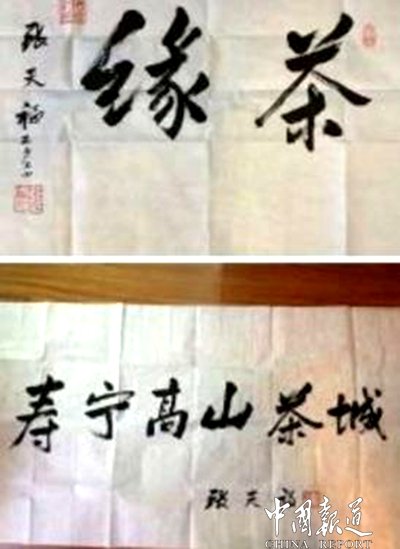 茶缘
张天福
寿宁高山茶城
张天福
中國報道
CHINA REPORT